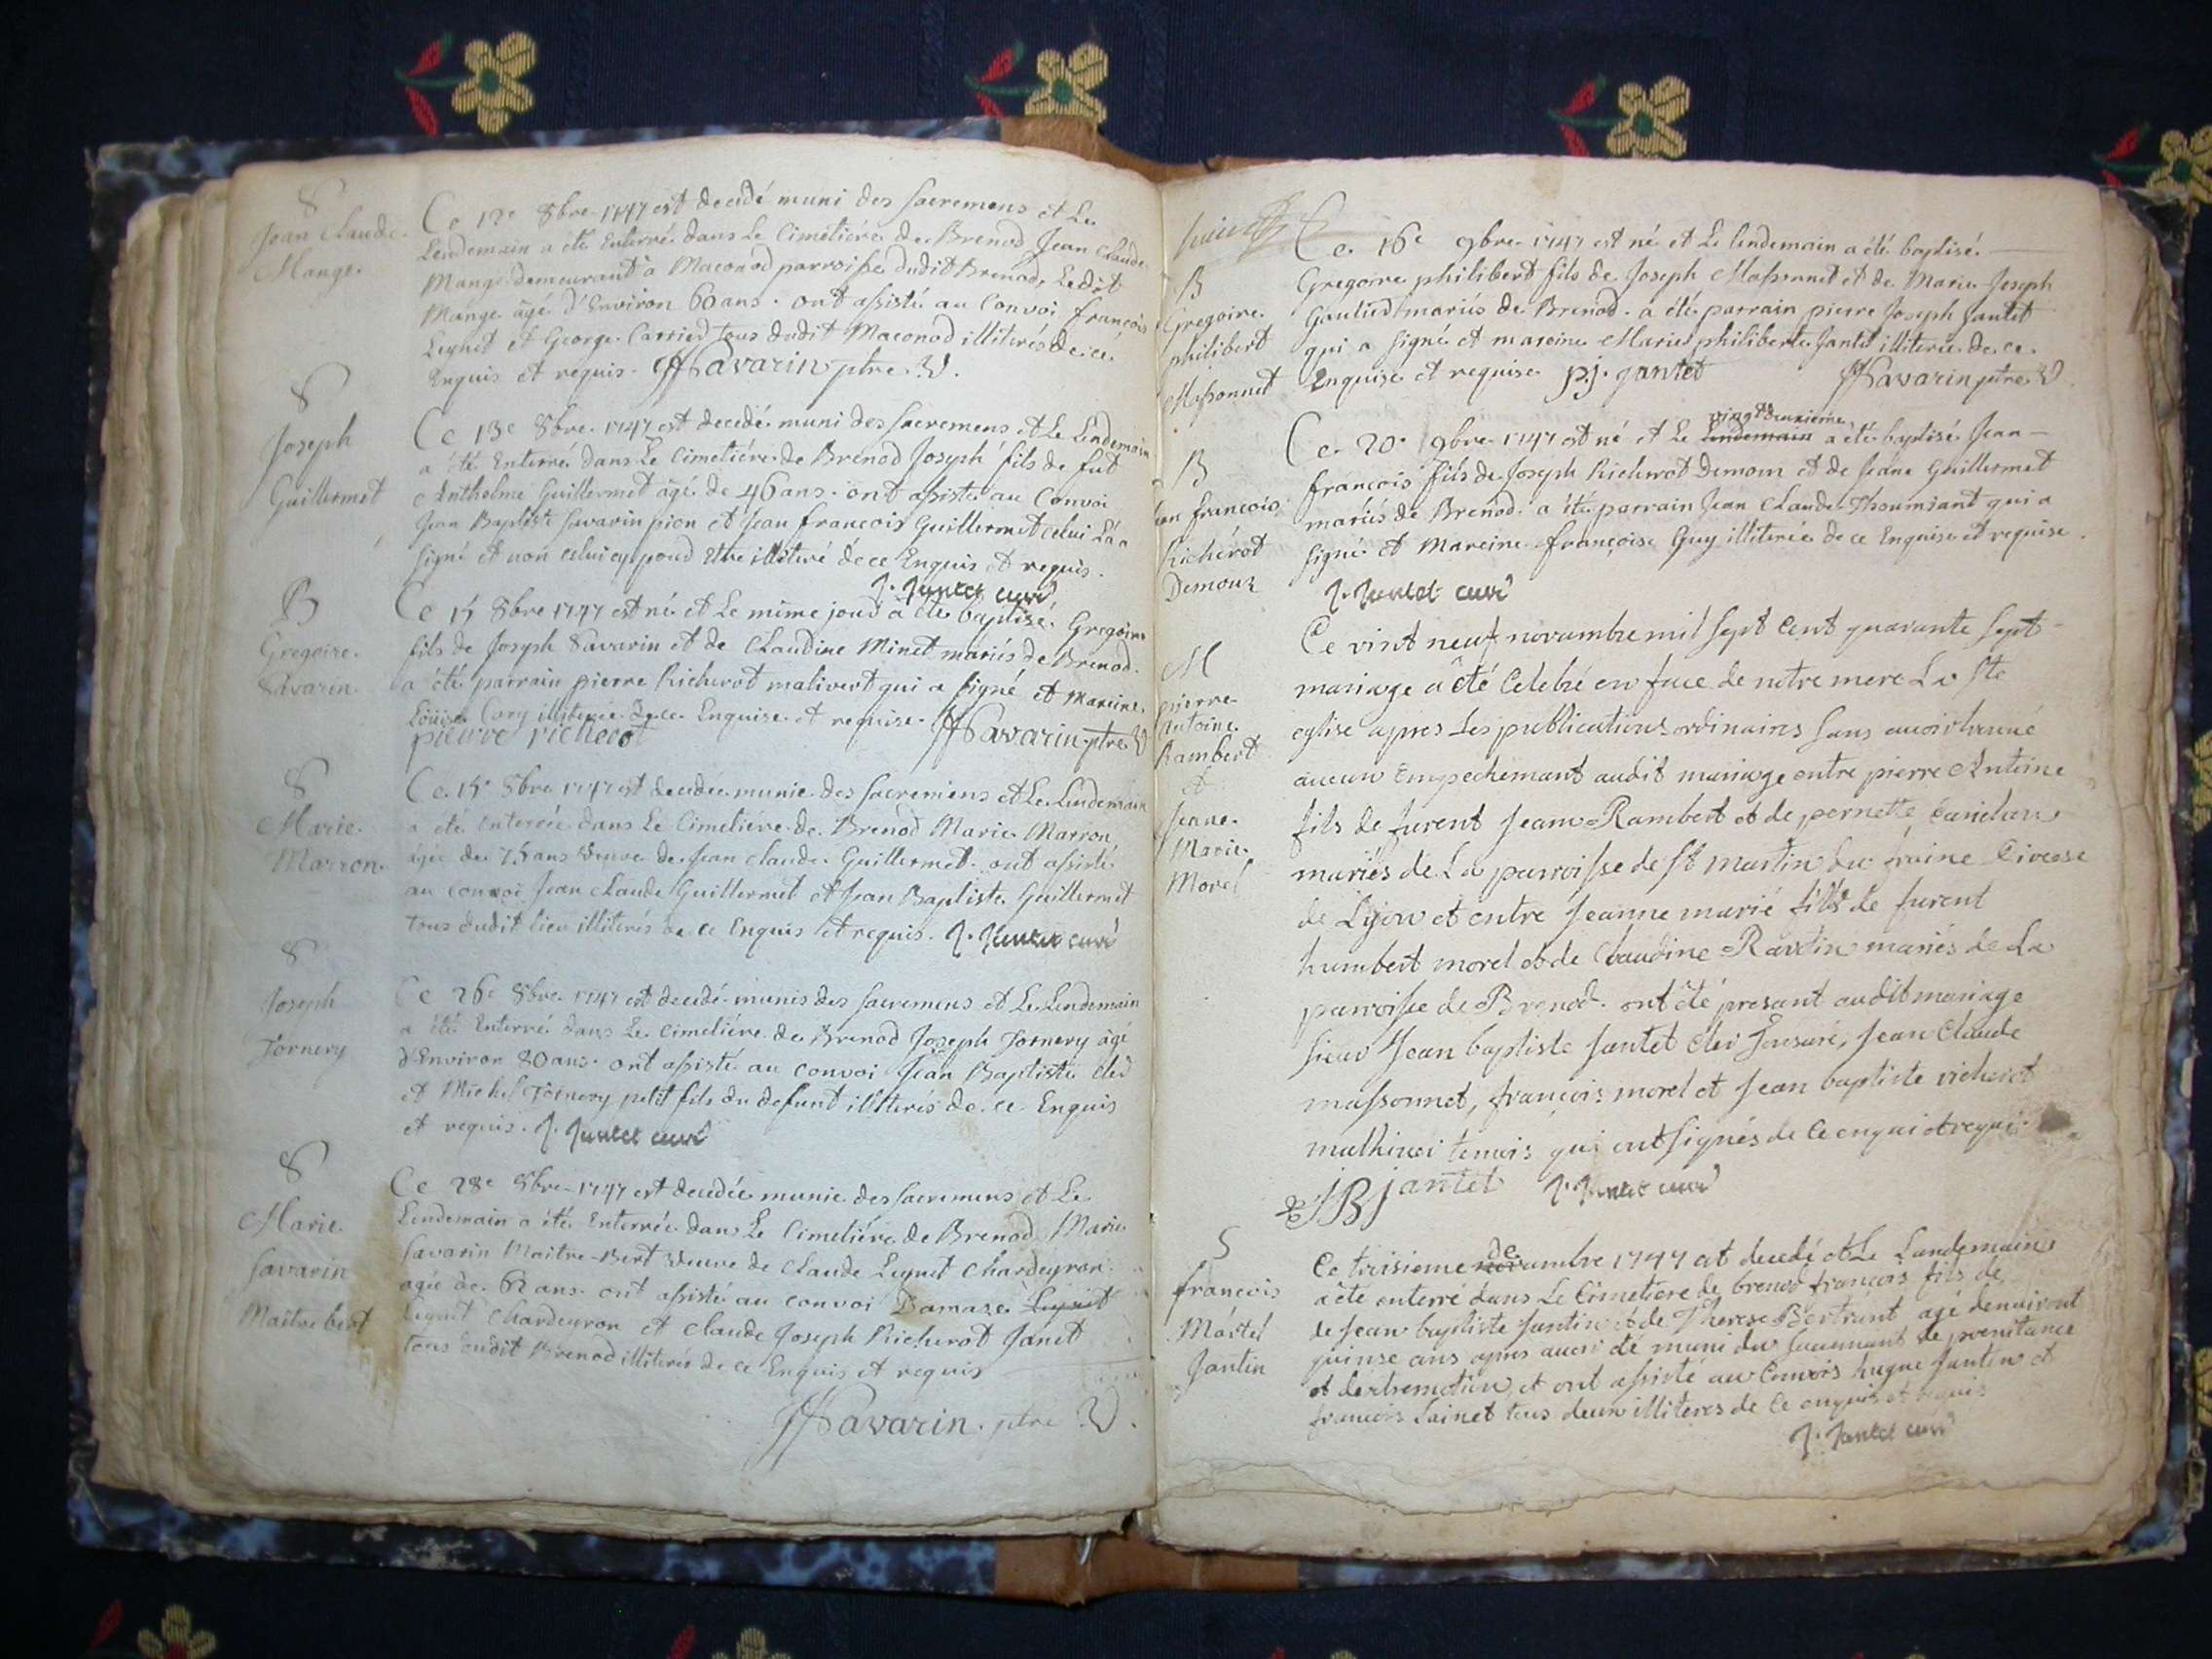 S
Jean Claude
Mange.
Ce 12e 8bre 1747 est decedé muni des Sacremens et Le
Lendemain a été Enterré dans Le Cimetiére de Brenod Jean Claude
Mange demeurant à Maconod parroisse dudit Brenod, Ledit
Mange agé d'Environ 60 ans. ont assisté au Convoi françois
Leynet et George Carrier tous dudit Maconod illiterés de ce
Enquis et requis. Savarin ptre V.
S
Joseph
Guillermet
Ce 13e 8bre 1747 est decedé muni des Sacremens et Le Lendemain
a été Enterré dans Le Cimetiére de Brenod Joseph fils de fut
Anthelme Guillermet agé de 46 ans. ont assisté au Convoi
Jean Baptiste Savarin pion et Jean francois Guillermet celui La a
signé et non celui cy pour Etre illiteré de ce Enquis et requis.
J. Jantet curé
B
Gregoire
Savarin
Ce 15 8bre 1747 est né et Le même jour a été baptisé Gregoire
fils de Joseph Savarin et de Claudine Minet mariés de Brenod.
a été parrain pierre Richerot malivert qui a signé et mareine
Loüise Cary illiterée de ce Enquise et requise. Savarin ptre V
pierre richerot
S
Marie
Marron
Ce 15e 8bre 1747 est decedée munie des Sacremens et Le Lendemain
a été enterrée dans Le Cimetiére de Brenod Marie Marron
agée de 75 ans veuve de Jean claude Guillermet. ont assisté
au convoi Jean claude Guillermet et Jean Baptiste Guillermet
tous dudit lieu illiterés de ce Enquis et requis. J. Jantet curé
S
Joseph
Tornery
Ce 26e 8bre 1747 est decedé munis des sacremens et Le Lendemain
a été Enterré dans Le cimetiére de Brenod Joseph Tornery âgé
d'Environ 80 ans. ont assisté au convoi Jean Baptiste
et Michel Tornery petit fils du defunt illiterés de ce Enquis
et requis. J. Jantet curé
S
Marie
Savarin
Maitrebert
Ce 28e 8bre 1747 est decedée munie des Sacremens et Le
Lendemain a été Enterrée dans Le Cimetiére de Brenod Marie
Savarin Maitre-Bert veuve de Claude Leynet Chardeyron
agée de 62 ans. ont assisté au convoi Damase Leynet
Leynet Chardeyron et Claude Joseph Richerot Janet
tous dudit Brenod illiterés de ce Enquis et requis
Savarin ptre V.
B
Gregoire
philibert
Massonnet
Ce 16e 9bre 1747 est né et Le lendemain a été baptisé
Gregoire philibert fils de Joseph Massonnet et de Marie Joseph
Gautier mariés de Brenod. a été parrain pierre Joseph Jantet
qui a signé et mareine Marie philiberte Jantet illiterée de ce
Enquise et requise p.j. jantet Savarin ptre V
B
Jean françois
Richerot
Demour
Ce 20e 9bre 1747 est né et Le lendemain vingt deuxieme a été baptisé Jean
francois fils de Joseph Richerot Demour et de Jeane Guillermet
mariés de Brenod. a été parrain Jean Claude Thoumiant qui a
signé et Mareine françoise Guy illiterée de ce Enquise et requise.
J. Jantet curé
M
pierre
Antoine
Rambert
et
Jeane
Marie
Morel
Ce vint neuf novambre mil sept cent quarante sept
mariage a été Celebré en face de notre mere La Ste
eglise apres Les publications ordinaires sans avoir trouvé
aucun Empechemant audit mariage entre pierre Antoine
fils de furent Jean Rambert et de pernette
mariés de La parroisse de St martin du fraine Diocese
de Lyon et entre Jeanne marie fille de furent
humbert morel et de Claudine Ravetin mariés de La
parroisse de Brenod. ont été presant audit mariage
sieur Jean baptiste Jantet clér Tonsuré, Jean Claude
massonnet, françois morel et Jean baptiste richerot
mathivoi temois qui ont signés de Ce enqui et requi
JB jantet J. Jantet curé
S
francois
Martel
Jantin
Ce troisieme novambre de 1747 est decedé et Le Landemain
a été enterré dans Le Cimetiere de brenod françois fils de
de Jean baptiste Jantin et de Therese Bertrant agé denviront
quinse ans apres avoir été muni du sacremant de penitance
et dextremotion, et ont assisté au Convois hugue Jantin et
francois Sainet tous deux illiteres de Ce enquis et requis
J. Jantet curé